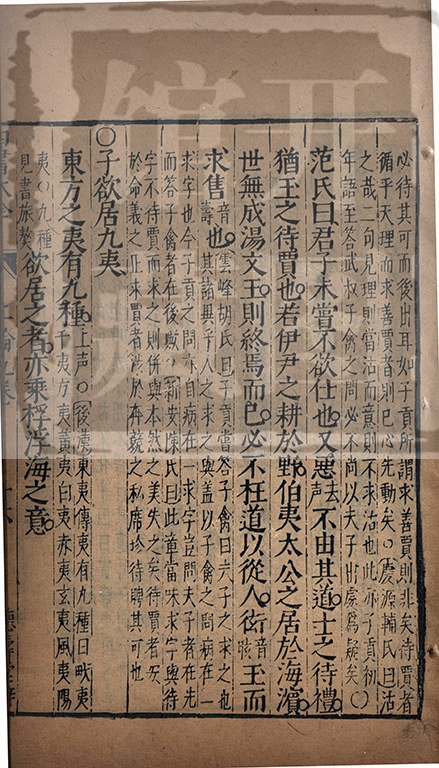 必待其可而後出耳如子貢所謂求善賈則非矣待賈者
循乎天理而求善賈者則已心先動矣○慶源輔氏曰沽
之哉二句見理則當沽而意則不求沽也此亦子貢初
年語至答武叔子禽之問必不尚以夫子出處爲疑矣○
范氏曰君子未嘗不欲仕也又惡去聲不由其道士之待禮
猶玉之待賈也若伊尹之耕於野伯夷太公之居於海濱
世無成湯文王則終焉而已必不枉道以從人衒音眩玉而
求售音壽也雲峰胡氏曰子貢嘗答子禽曰夫子之求之也
其諸異乎人之求之與蓋以子禽之問病在一
求字也今子貢之問亦自病在一求字豈問夫子者在先
而答子禽者在後歟○新安陳氏曰此章當味求字與待
字不待賈而求之則併與本然之美失之矣待賈者安
於命義之正求賈者涉於奔競之私席珍待聘其可也
○子欲居九夷
東方之夷有九種上声○後漢東夷傳夷有九種曰畎夷
于夷方夷黃夷白夷赤夷玄夷風夷陽
夷○九種
見書旅獒欲居之者亦乘桴浮海之意